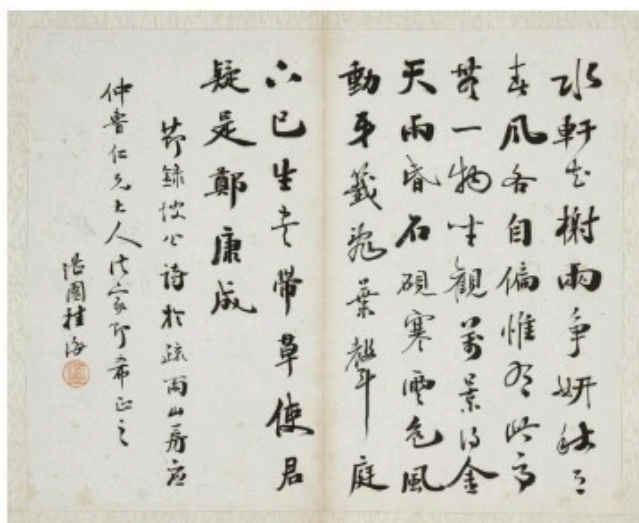 水軒花榭兩爭妍秋月
春風各自偏惟有此亭
無一物坐觀萬景得全
天雨昏石硯寒雲色風
動牙籤亂葉聲庭
下已生書帶草使君
疑是鄭康成
節錄坡公詩於疏雨山房應
仲魯仁兄大人法家即希正之
園桂海